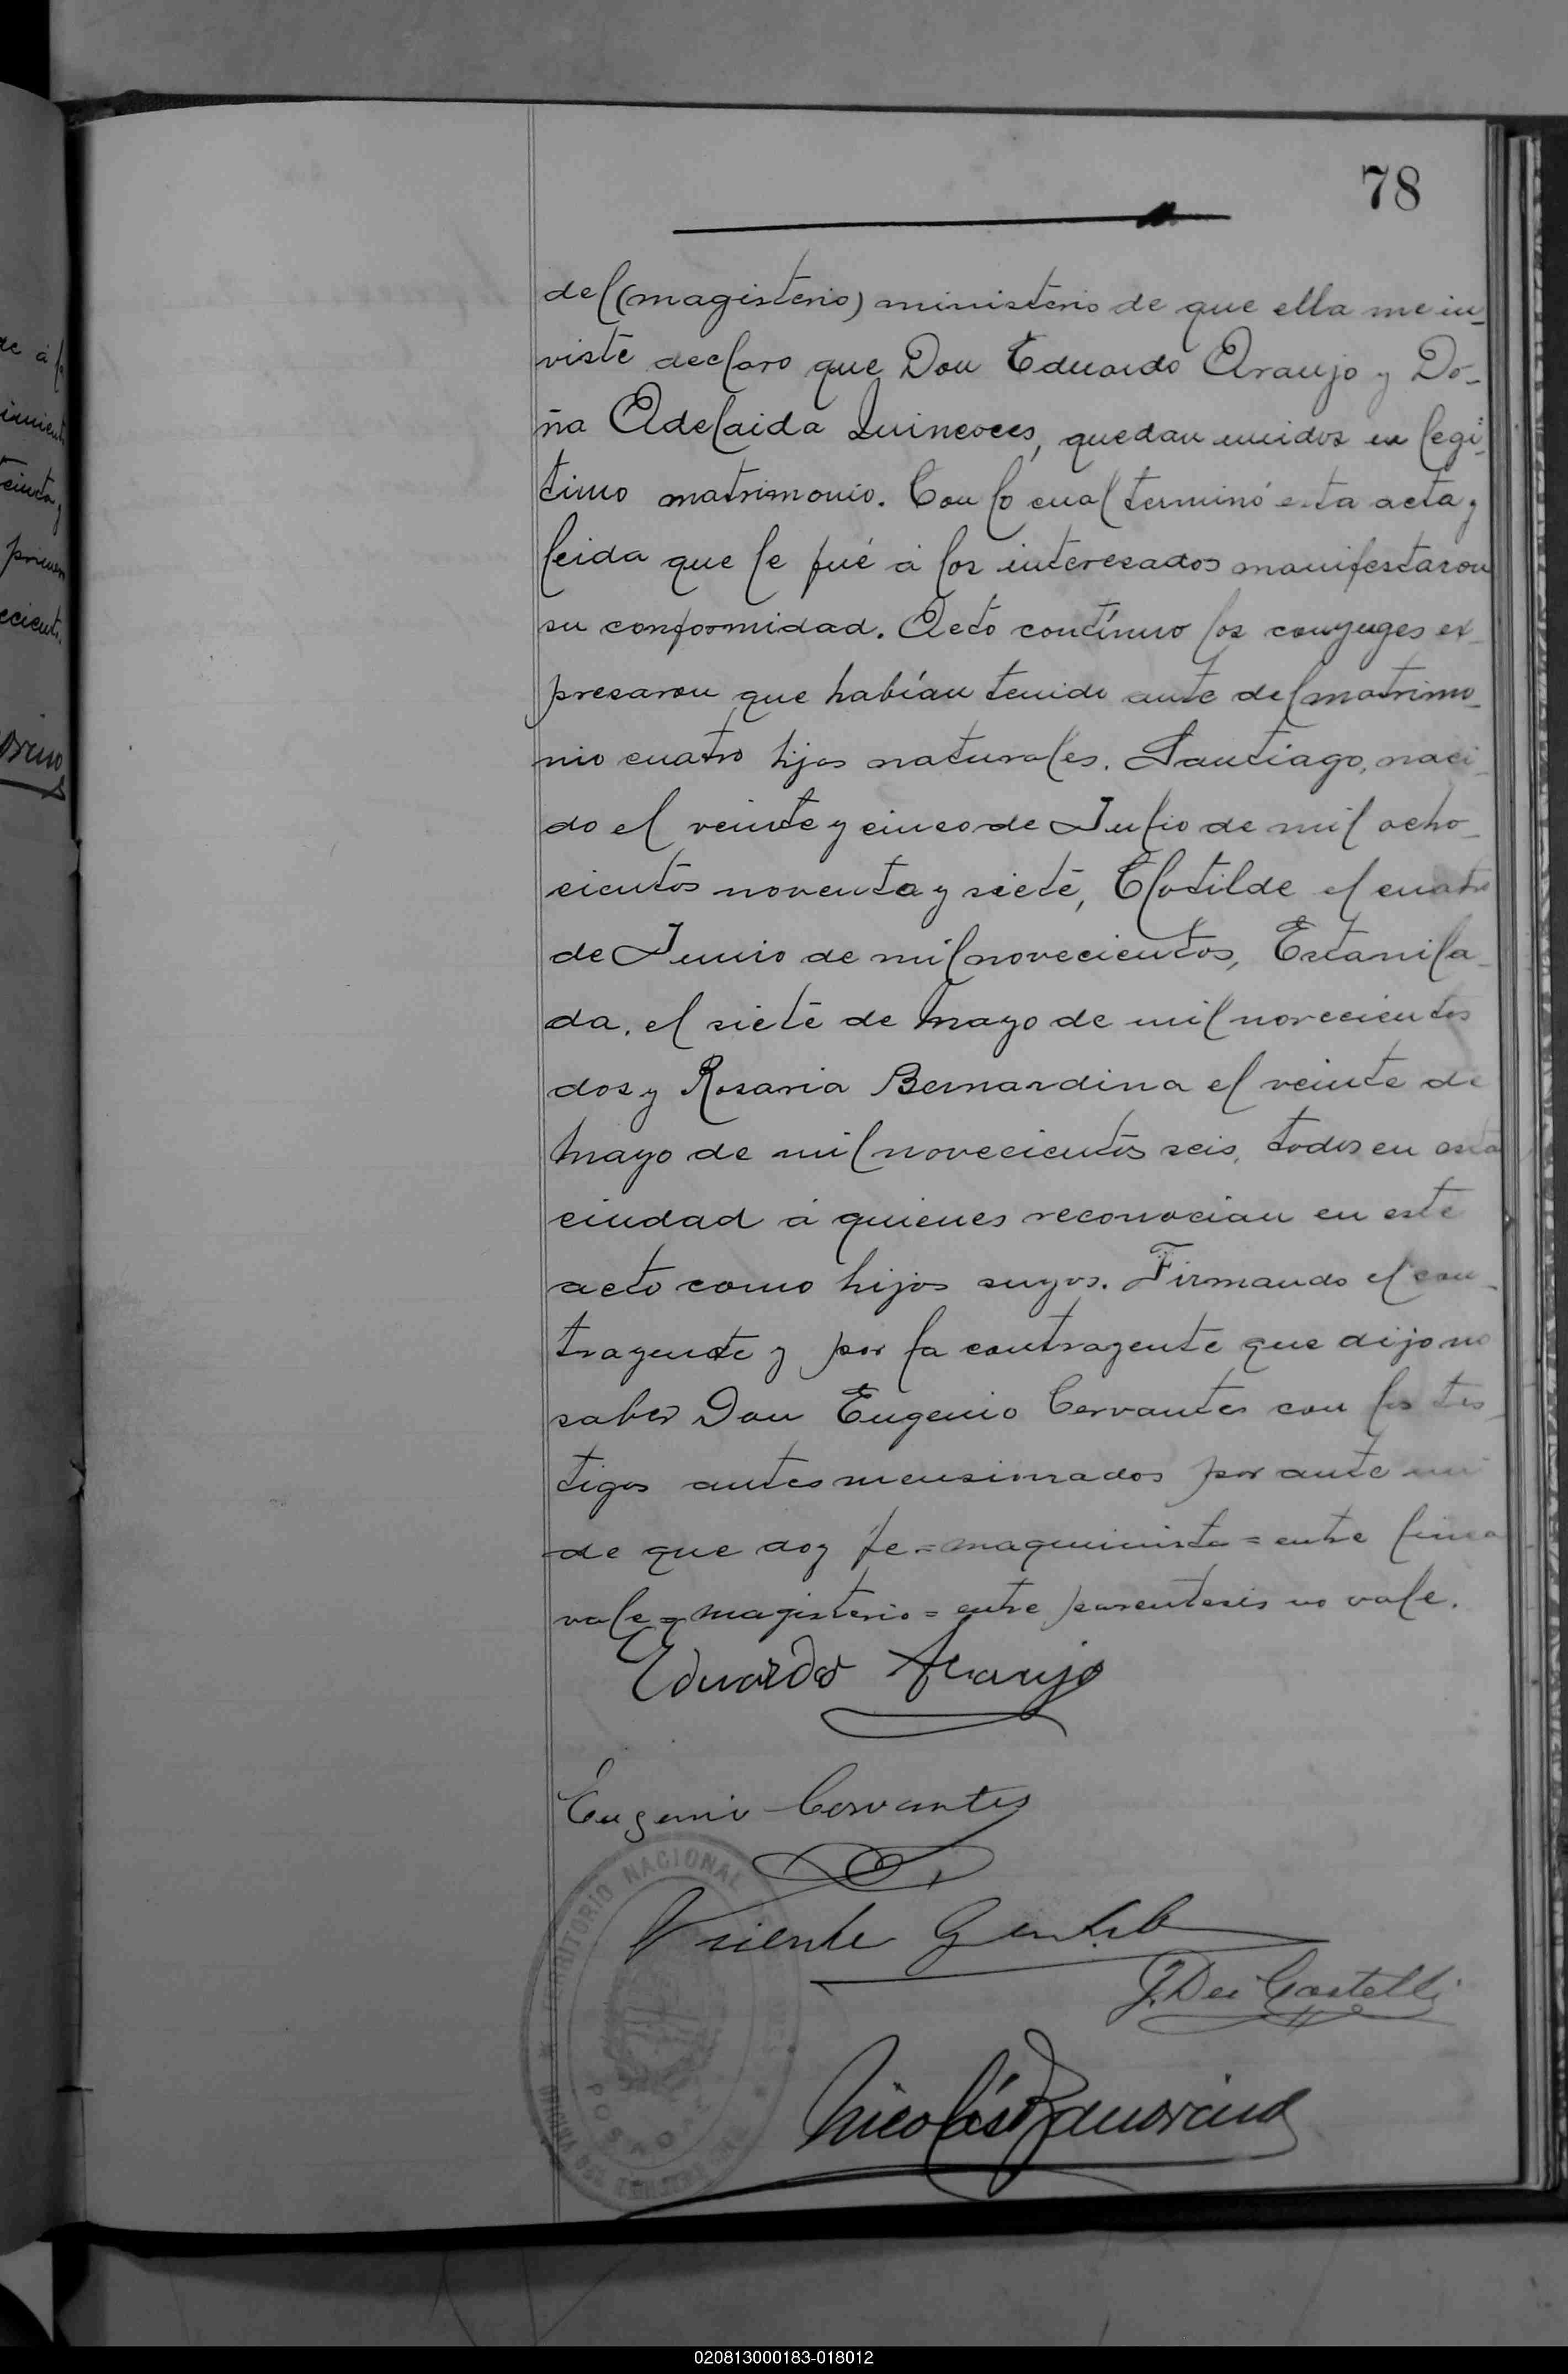 78
del (magisterio) ministerio de que ella me in-
viste declaro que Don Eduardo Araujo y Do-
ña Adelaida Quincoces, quedan unidos en legi-
timo matrimonio. Con lo cual terminó esta acta y
leida que le fué á los interesados manifestaron
su conformidad. Acto contínuo los conyuges ex-
presaron que habían tenido ante del matrimo-
nio cuatro hijos naturales. Santiago, naci-
do el veinte y cinco de Julio de mil ocho-
cientos noventa y siete, Clotilde el cuatro
de Junio de mil novecientos, Estanila-
da, el siete de Mayo de mil novecientos
dos y Rosaria Bernardina el veinte de
Mayo de mil novecientos seis, todos en esta
ciudad á quienes reconocian en este
acto como hijos suyos. Firmando el con-
trayente y por la contrayente que dijo no
saber Don Eugenio Cervantes con los tes-
tigos antes mensionados por ante mi
de que doy fe = maquinista = entre linea
vale = magisterio = entre parentesis no vale.
Eduardo Araujo
Eugenio Cervantes
Vicente Gentile
J. Dei Castelli
Nicolás Zamorino
TERRITORIO NACIONAL
POSADAS
de á
primer
orino
020813000183-018012